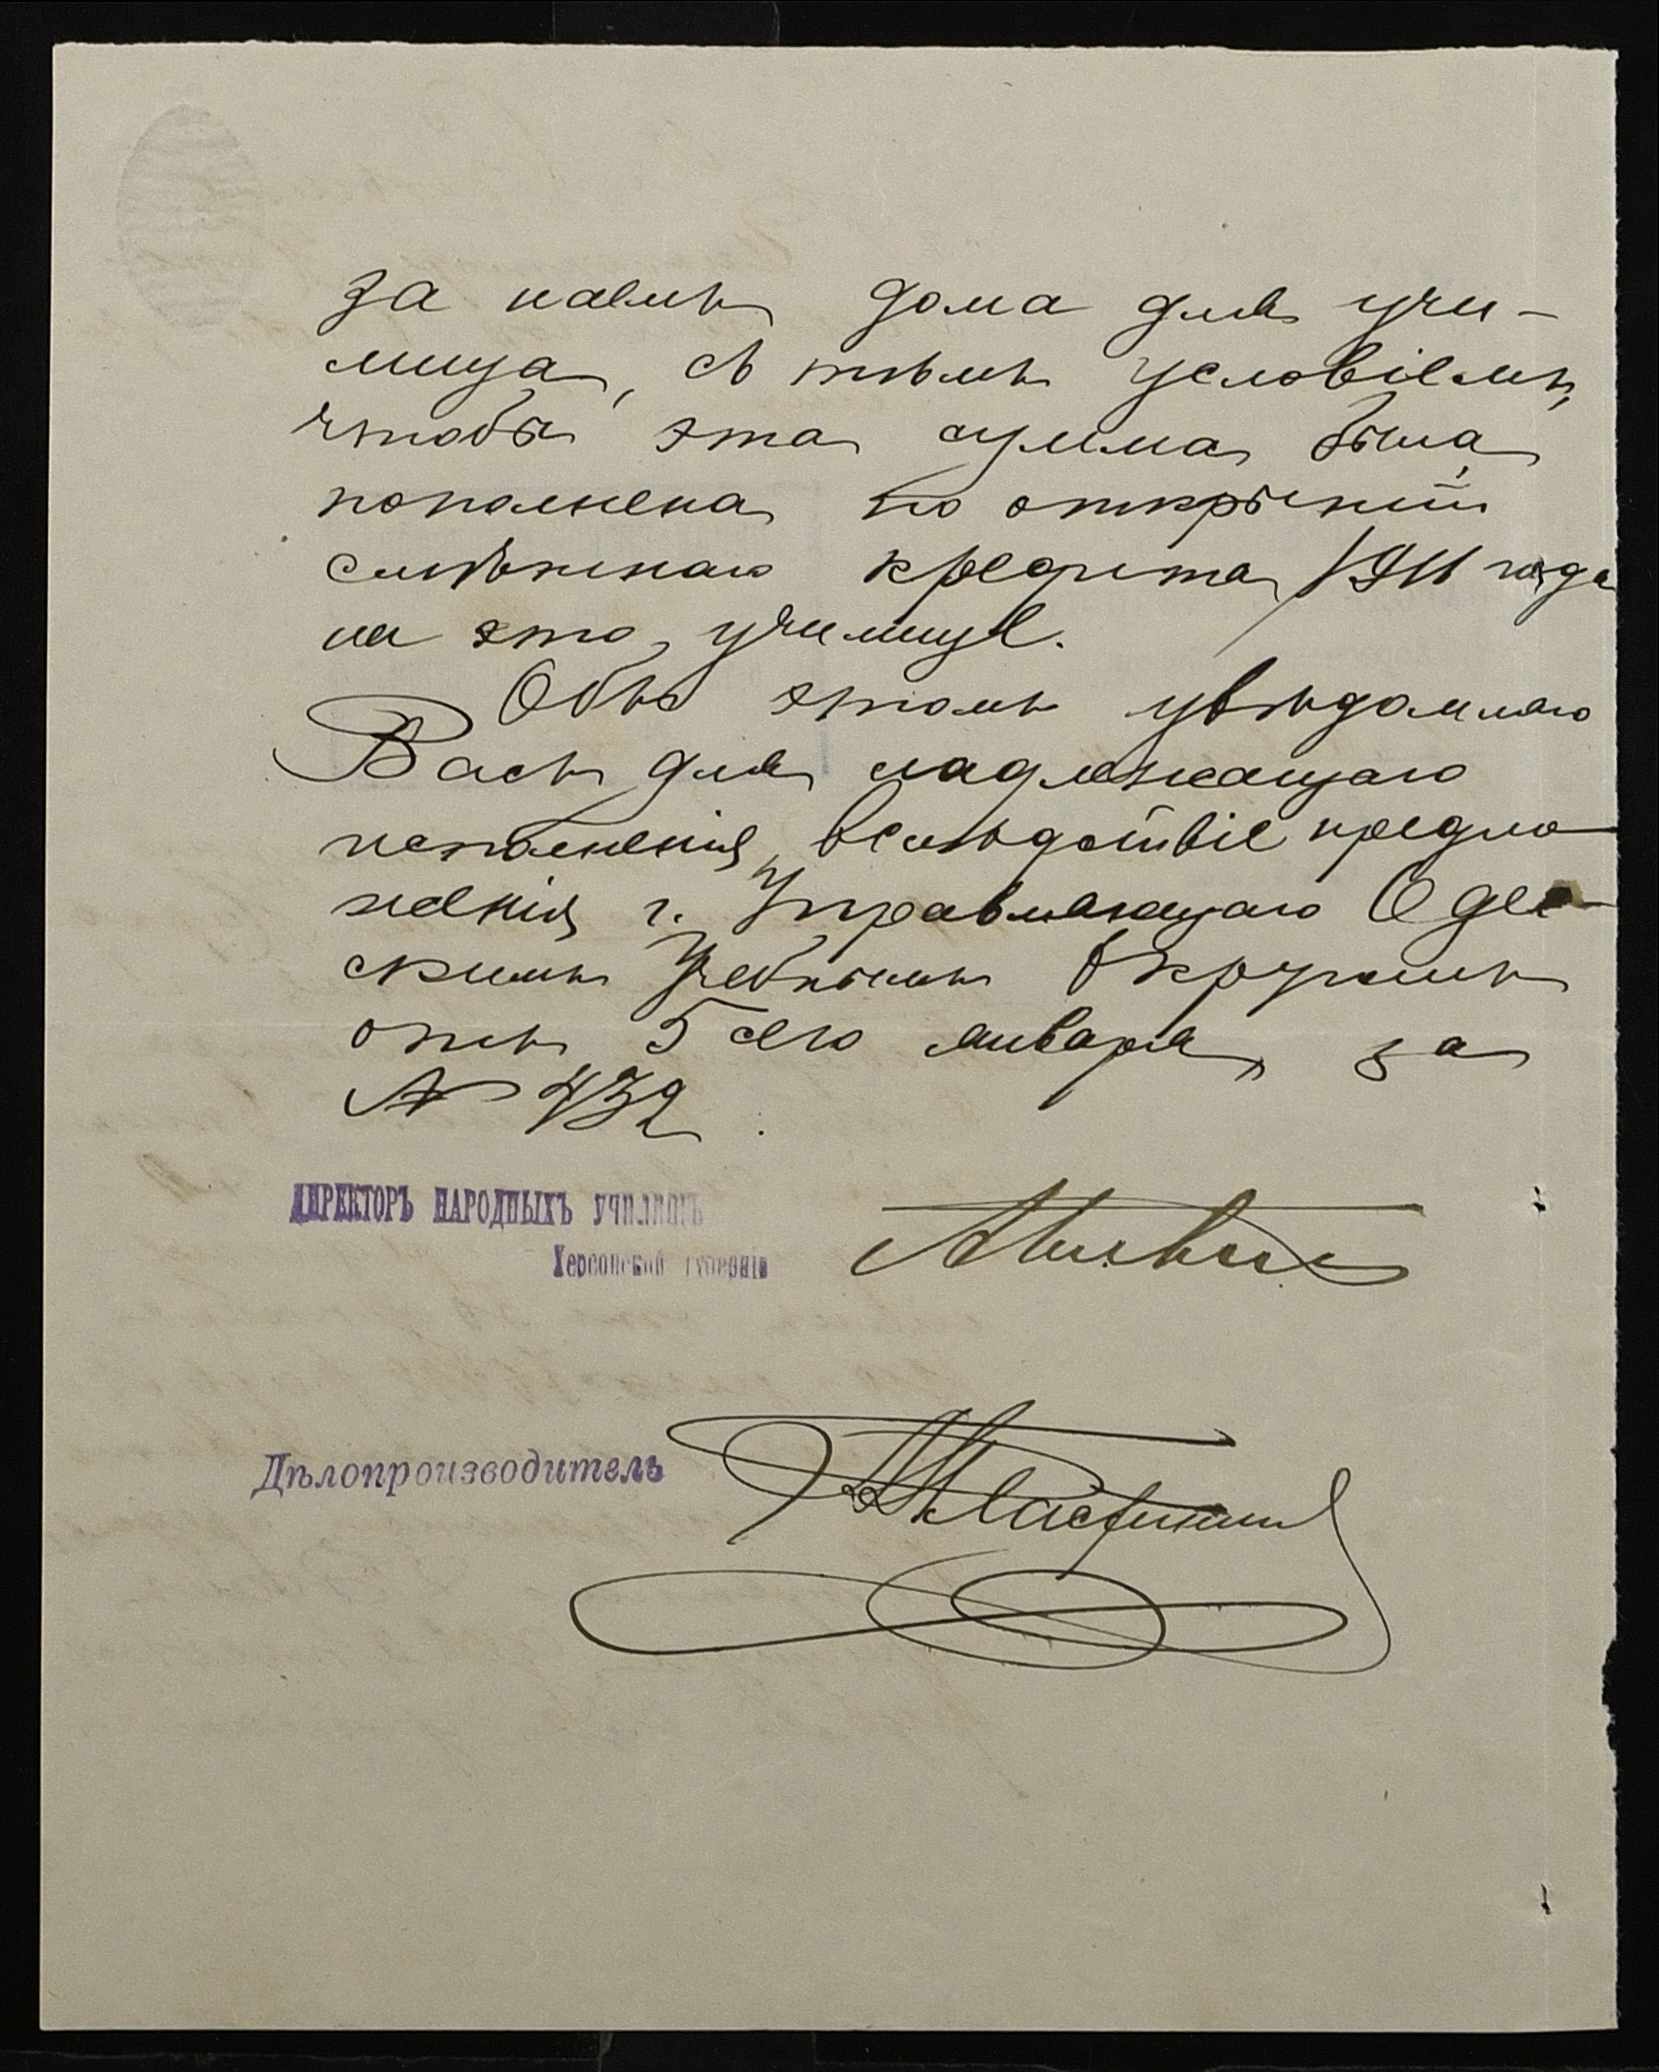 за наемъ дома для учи-
лища, съ тѣмъ условіемъ,
чтобы эта сумма была
пополнена по открытіи
смѣтнаго кредита 1911 года
на это училище.
Объ этомъ увѣдомляю
Васъ для надлежащаго
исполненія, вслѣдствіе предло-
женія г. Управляющаго Одес-
скимъ Учебнымъ Округомъ
отъ 5 сего января за
№ 432
ДИРЕКТОРЪ НАРОДНЫХЪ УЧИЛИЩЪ
Херсонской губерніи
Дѣлопроизводитель